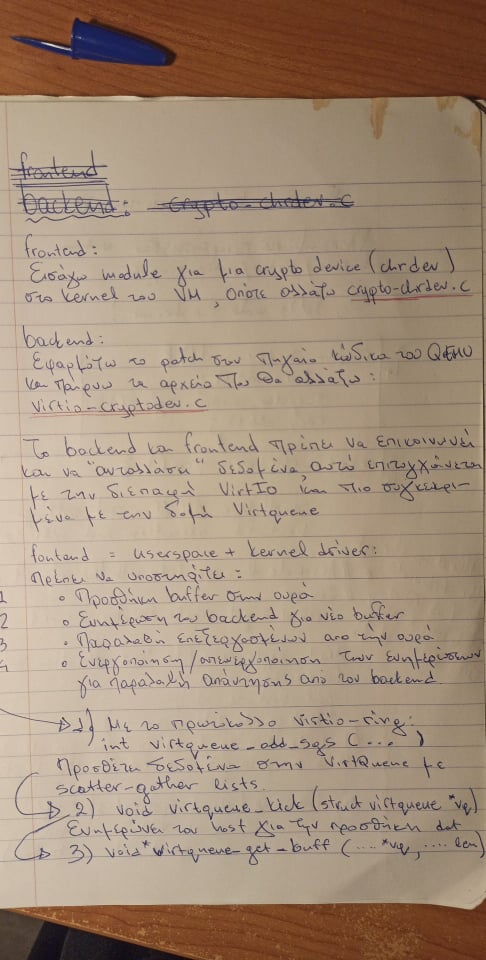 frontend
backend: crypto-chrdev.c
frontend:
Εισάγω module για μια crypto device (chrdev)
στο kernel του VM, οπότε αλλάζω crypto-chrdev.c
backend:
Εφαρμόζω το patch στον πηγαίο κώδικα του QEMU
και παίρνω τα αρχεία που θα αλλάξω:
virtio-cryptodev.c
Το backend και frontend πρέπει να επικοινωνεί
και να "ανταλλάσει" δεδομένα, αυτό επιτυγχάνεται
με την διεπαφή VirtIO και πιο συγκεκρι-
μένα με την δομή Virtqueue
fontend = userspace + kernel driver:
πρέπει να υποστηρίζει:
1 ∘ Προσθήκη buffer στην ουρά
2 ∘ Ενημέρωση του backend για νέο buffer
3 ∘ Παραλαβή επεξεργασμένων απο την ουρά
4 ∘ Ενεργοποίηση/απενεργοποίηση των ενημερώσεων
για παραλαβή απάντησης απο τον backend
1) Με το πρωτόκολλο virtio-ring:
int virtqueue_add_sgs (...)
Προσθέτει δεδομένα στην VirtQueue με
scatter-gather lists.
2) void virtqueue_kick (struct virtqueue *vq)
Ενημερώνει τον host για την προσθήκη dat
3) void* virtqueue_get_buff (.... *vq, .... len)